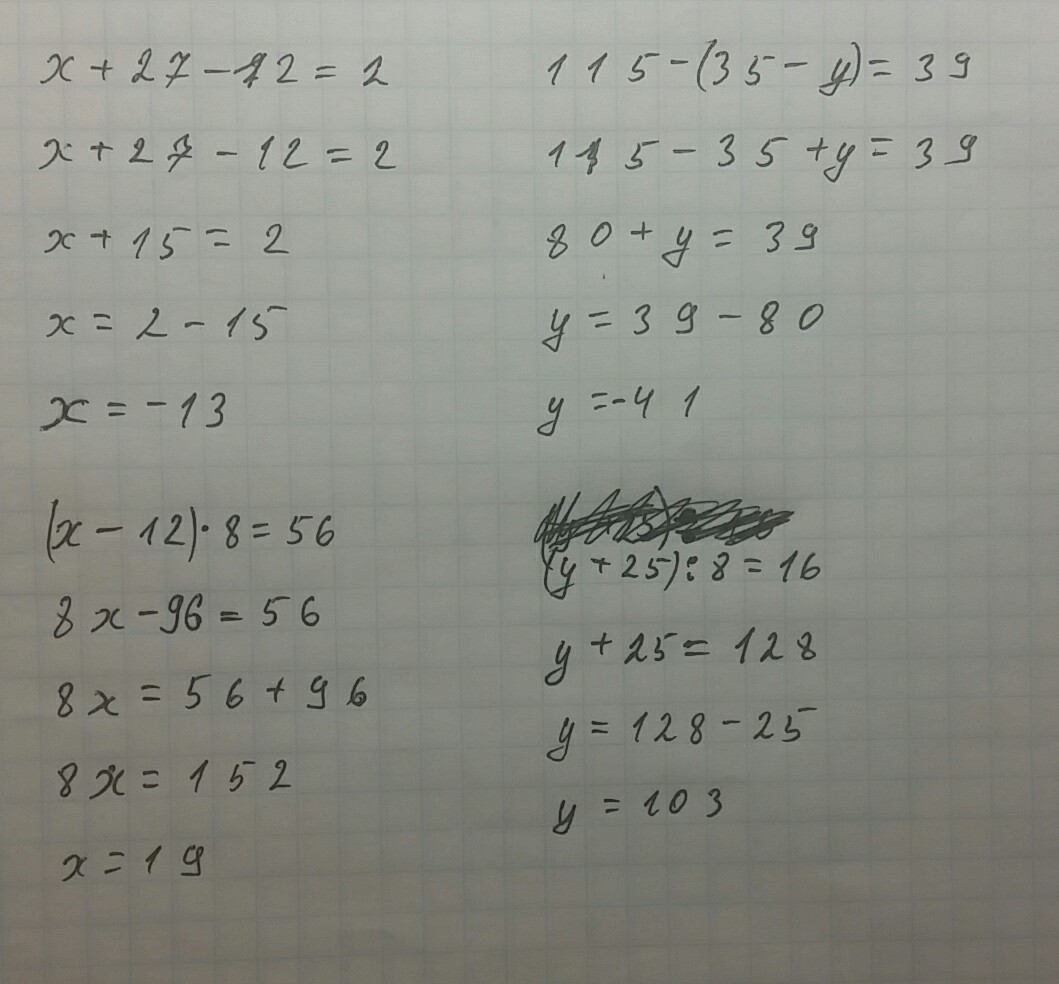 x + 27 - 12 = 2
x + 27 - 12 = 2
x + 15 = 2
x = 2 - 15
x = -13
115 - (35 - y) = 39
115 - 35 + y = 39
80 + y = 39
y = 39 - 80
y = -41
(x - 12) · 8 = 56
8x - 96 = 56
8x = 56 + 96
8x = 152
x = 19
(y + 25) : 8 = 16
y + 25 = 128
y = 128 - 25
y = 103